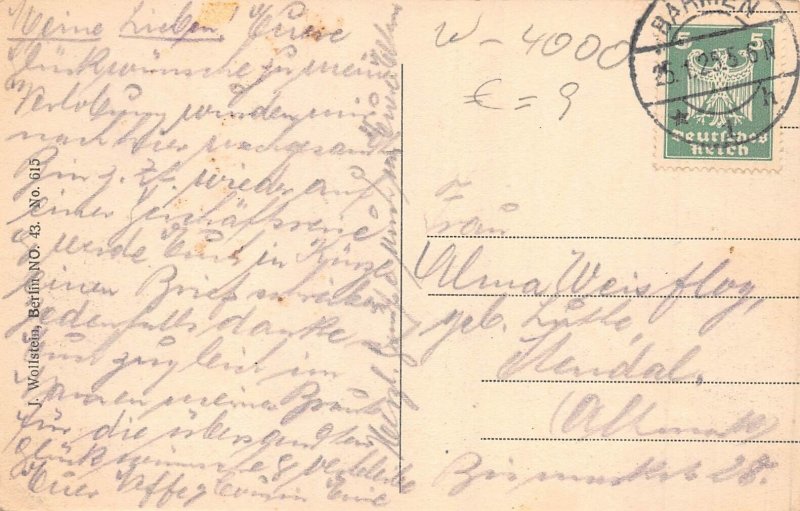 Meine Lieben! Eure
Glückwünsche zu meiner
Verlobung wurden mir
nach hier nachgesandt
Bin z. Zt. wieder auf
einer Geschäftsreise
& werde Euch in Kürze
einen Brief schreiben
jedenfalls danke
Euch zugleich im
Namen meiner Braut
für die übersandten
Glückwünsche & verbleibe
Euer Neffe & Cousin
Herzl.
J. Wollstein, Berlin NO. 43. No. 615
W - 4000
€ = 9
BARMEN
25.1.25. 5-6 N
* 1 h
5 5
Deutsches
Reich
Frau
Alma Weisflog,
geb. Lütke,
Stendal,
(Altmark)
Bismarckstr 28.